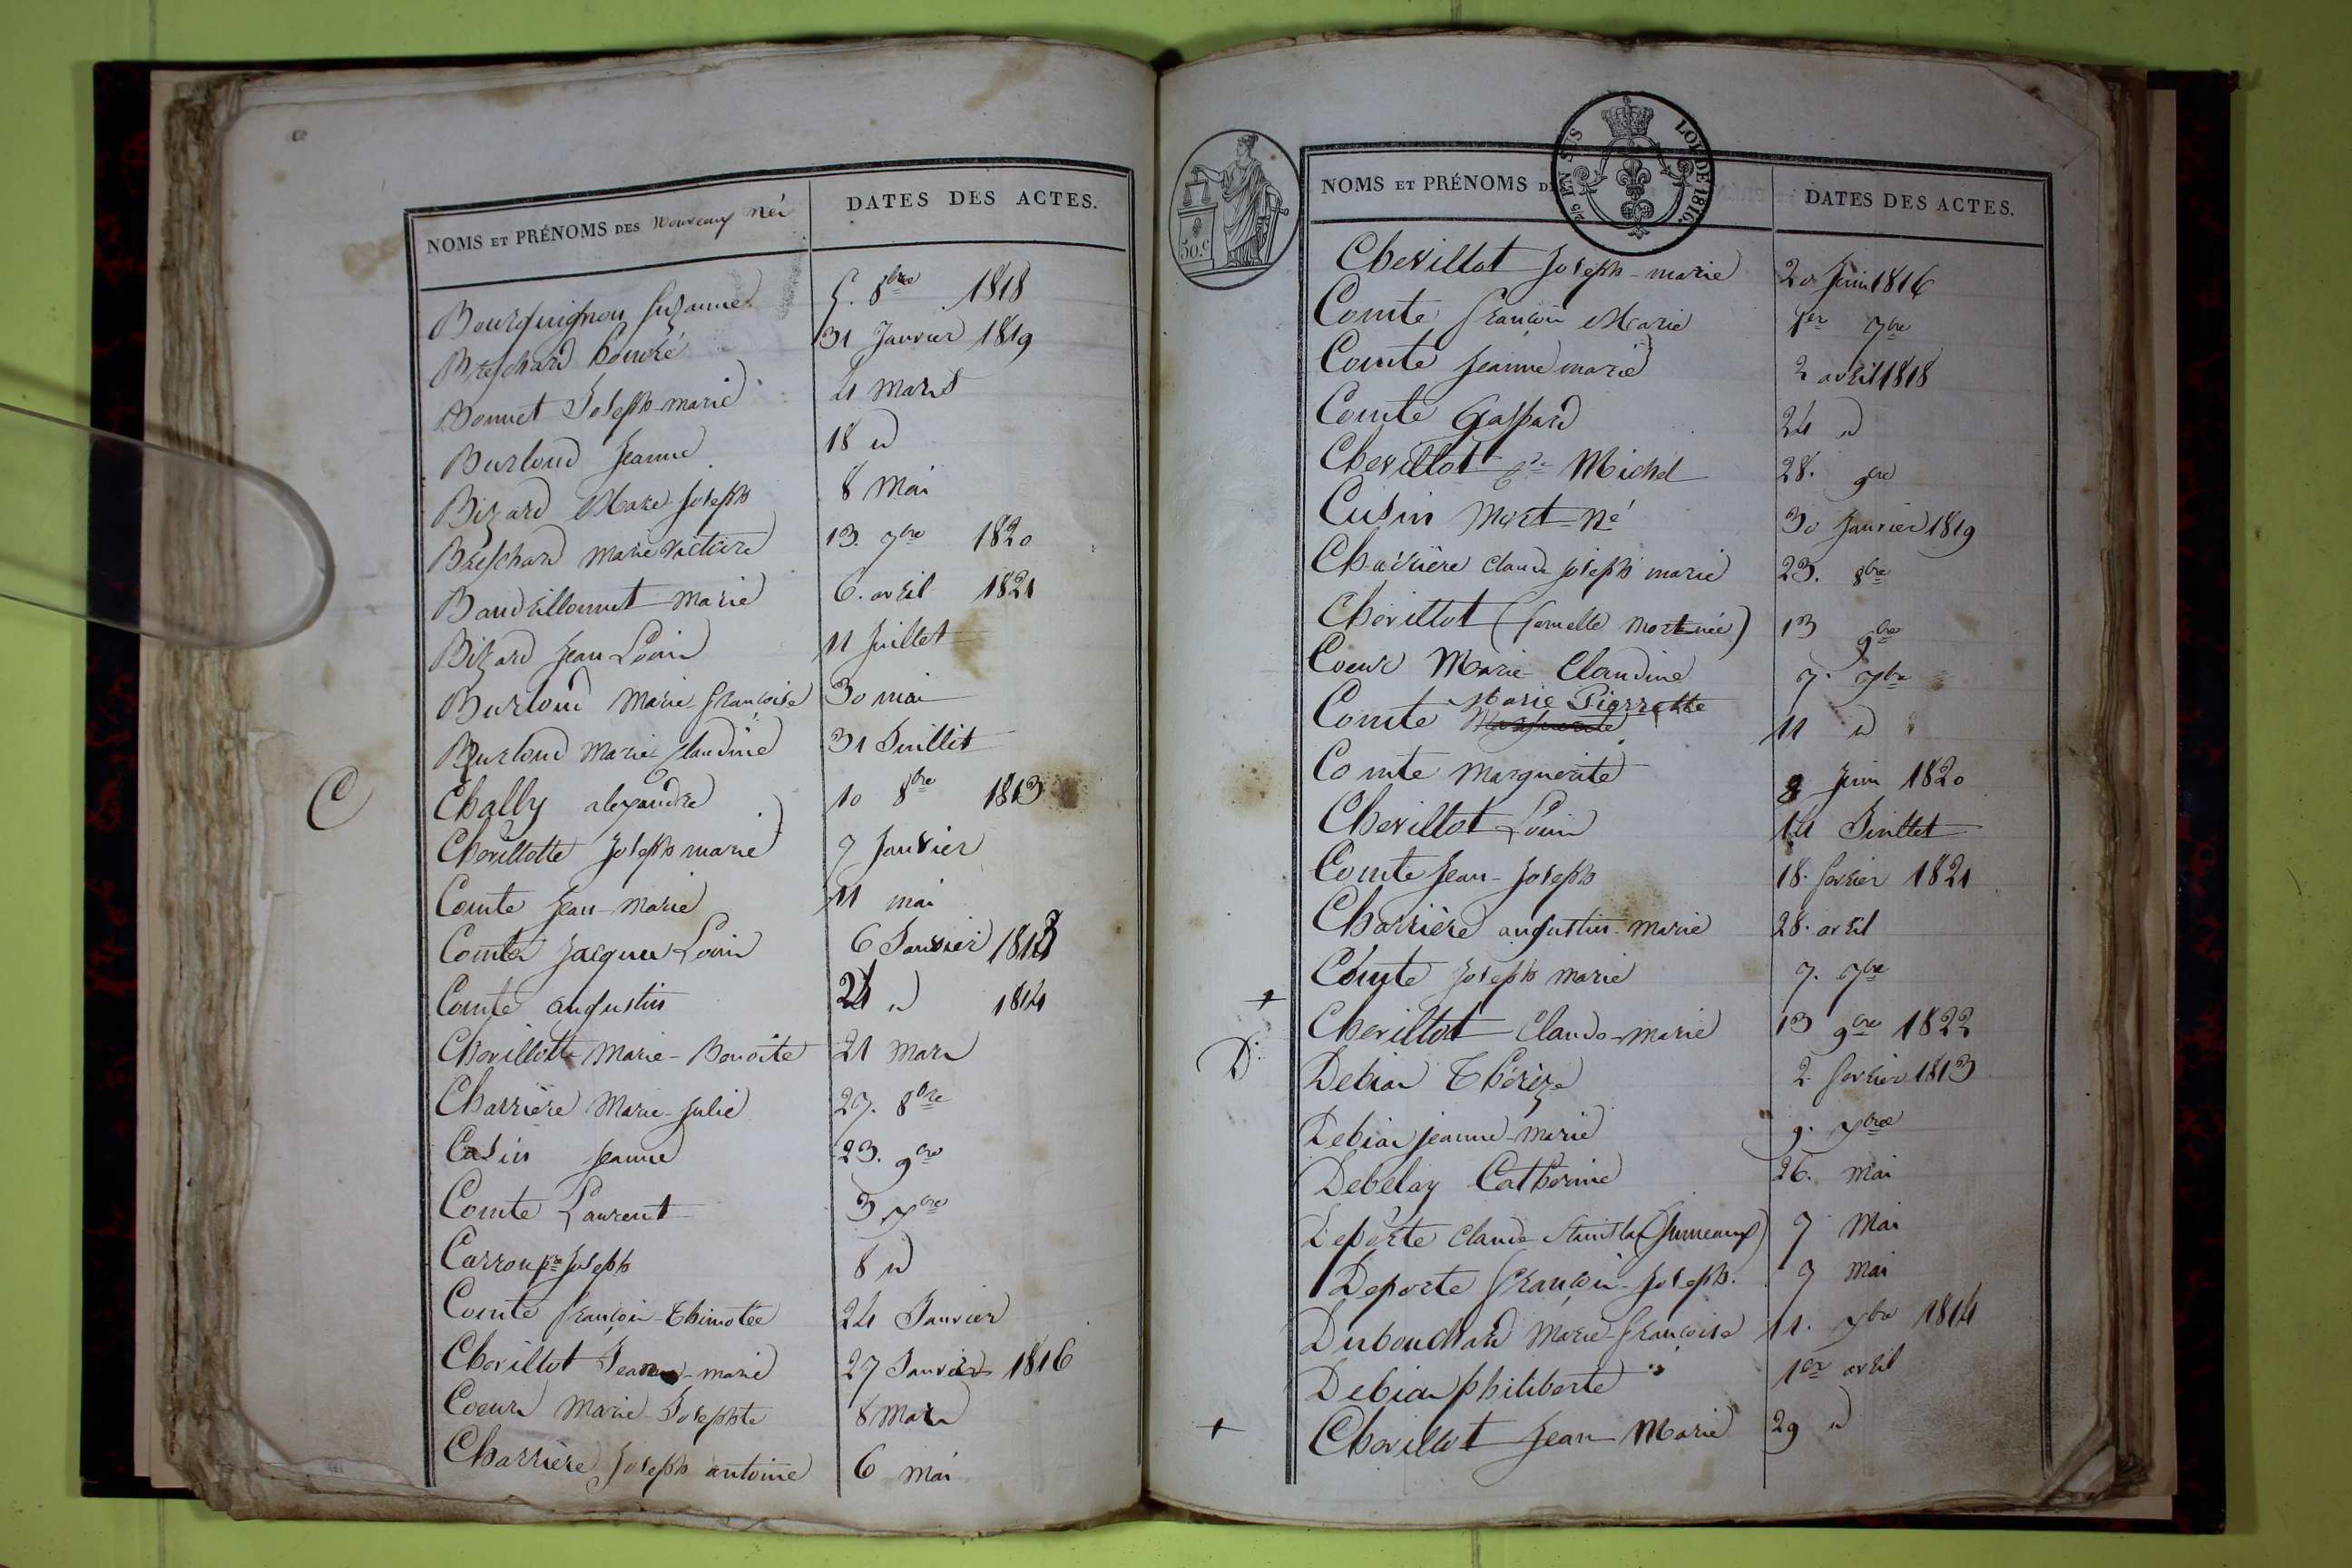 NOMS ET PRÉNOMS DES Nouveaux Nés
DATES DES ACTES.
Bourguignon Suzanne 5. 8bre 1818
Breschard Honoré 31 Janvier 1819
Bonnet Joseph-marie 4 Mars
Burloud Jeanne 18 id
Bizard Marie Joseph 8 Mai
Breschard Marie Victoire 13. 7bre 1820
Baudrillonnet Marie 6. avril 1821
Bizard Jean Louis 11 Juillet
Burloud Marie françoise 30 mai
Burloud Marie Claudine 31 Juillet
C
Chally alexandre 10 8bre 1813
Chevillotte Joseph marie 7 Janvier
Comte Jean-Marie 11 mai
Comte Jacques Louis 6 Janvier 1813
Comte augustin 24 id 1814
Chevillotte Marie-Benoite 21 Mars
Charrière Marie-Julie 27. 8bre
Cusin Jeanne 23. 9bre
Comte Laurent 3 7bre
Carron pre Joseph 8 id
Comte françois-Thimotée 24 Janvier
Chevillot Jeanne-marie 27 Janvier 1816
Coeur Marie-Josephte 8 Mars
Charrière Joseph antoine 6 Mai
50.c
2/5 EN SUS
LOI DE 1816.
NOMS ET PRÉNOMS DES
DATES DES ACTES.
Chevillot Joseph-marie 20 Juin 1816
Comte françois Marie 1er 7bre
Comte Jeanne marie 2 avril 1818
Comte Gaspard 24 id
Chevillot pre Michel 28. 9bre
Cusin Mort-né 30 Janvier 1819
Charrière Claude Joseph marie 23. 8bre
Chevillot (femelle Mort née) 13 9bre
Coeur Marie Claudine 7. 7bre
Marie Pierrette
Comte Marguerite 11 id
Comte Marguerite 8 Juin 1820
Chevillot Louis 14 Juillet
Comte Jean-Joseph 18. fevrier 1821
Charrière augustin-Marie 28. avril
Comte Joseph marie 7. 7bre
+
Chevillot Claude-marie 13 9bre 1822
D
Debias Thérèze 2 fevrier 1813
Debias Jeanne-Marie 9. 7bre
Debelay Catherine 26. Mai
Deporte Claude Stanislas (Jumeaux) 7 Mai
Deporte françois-Joseph. 7 Mai
Dubouchard Marie-françoise 11. 7bre 1814
Debias philiberte 1er avril
+
Chevillot Jean Marie 29 id